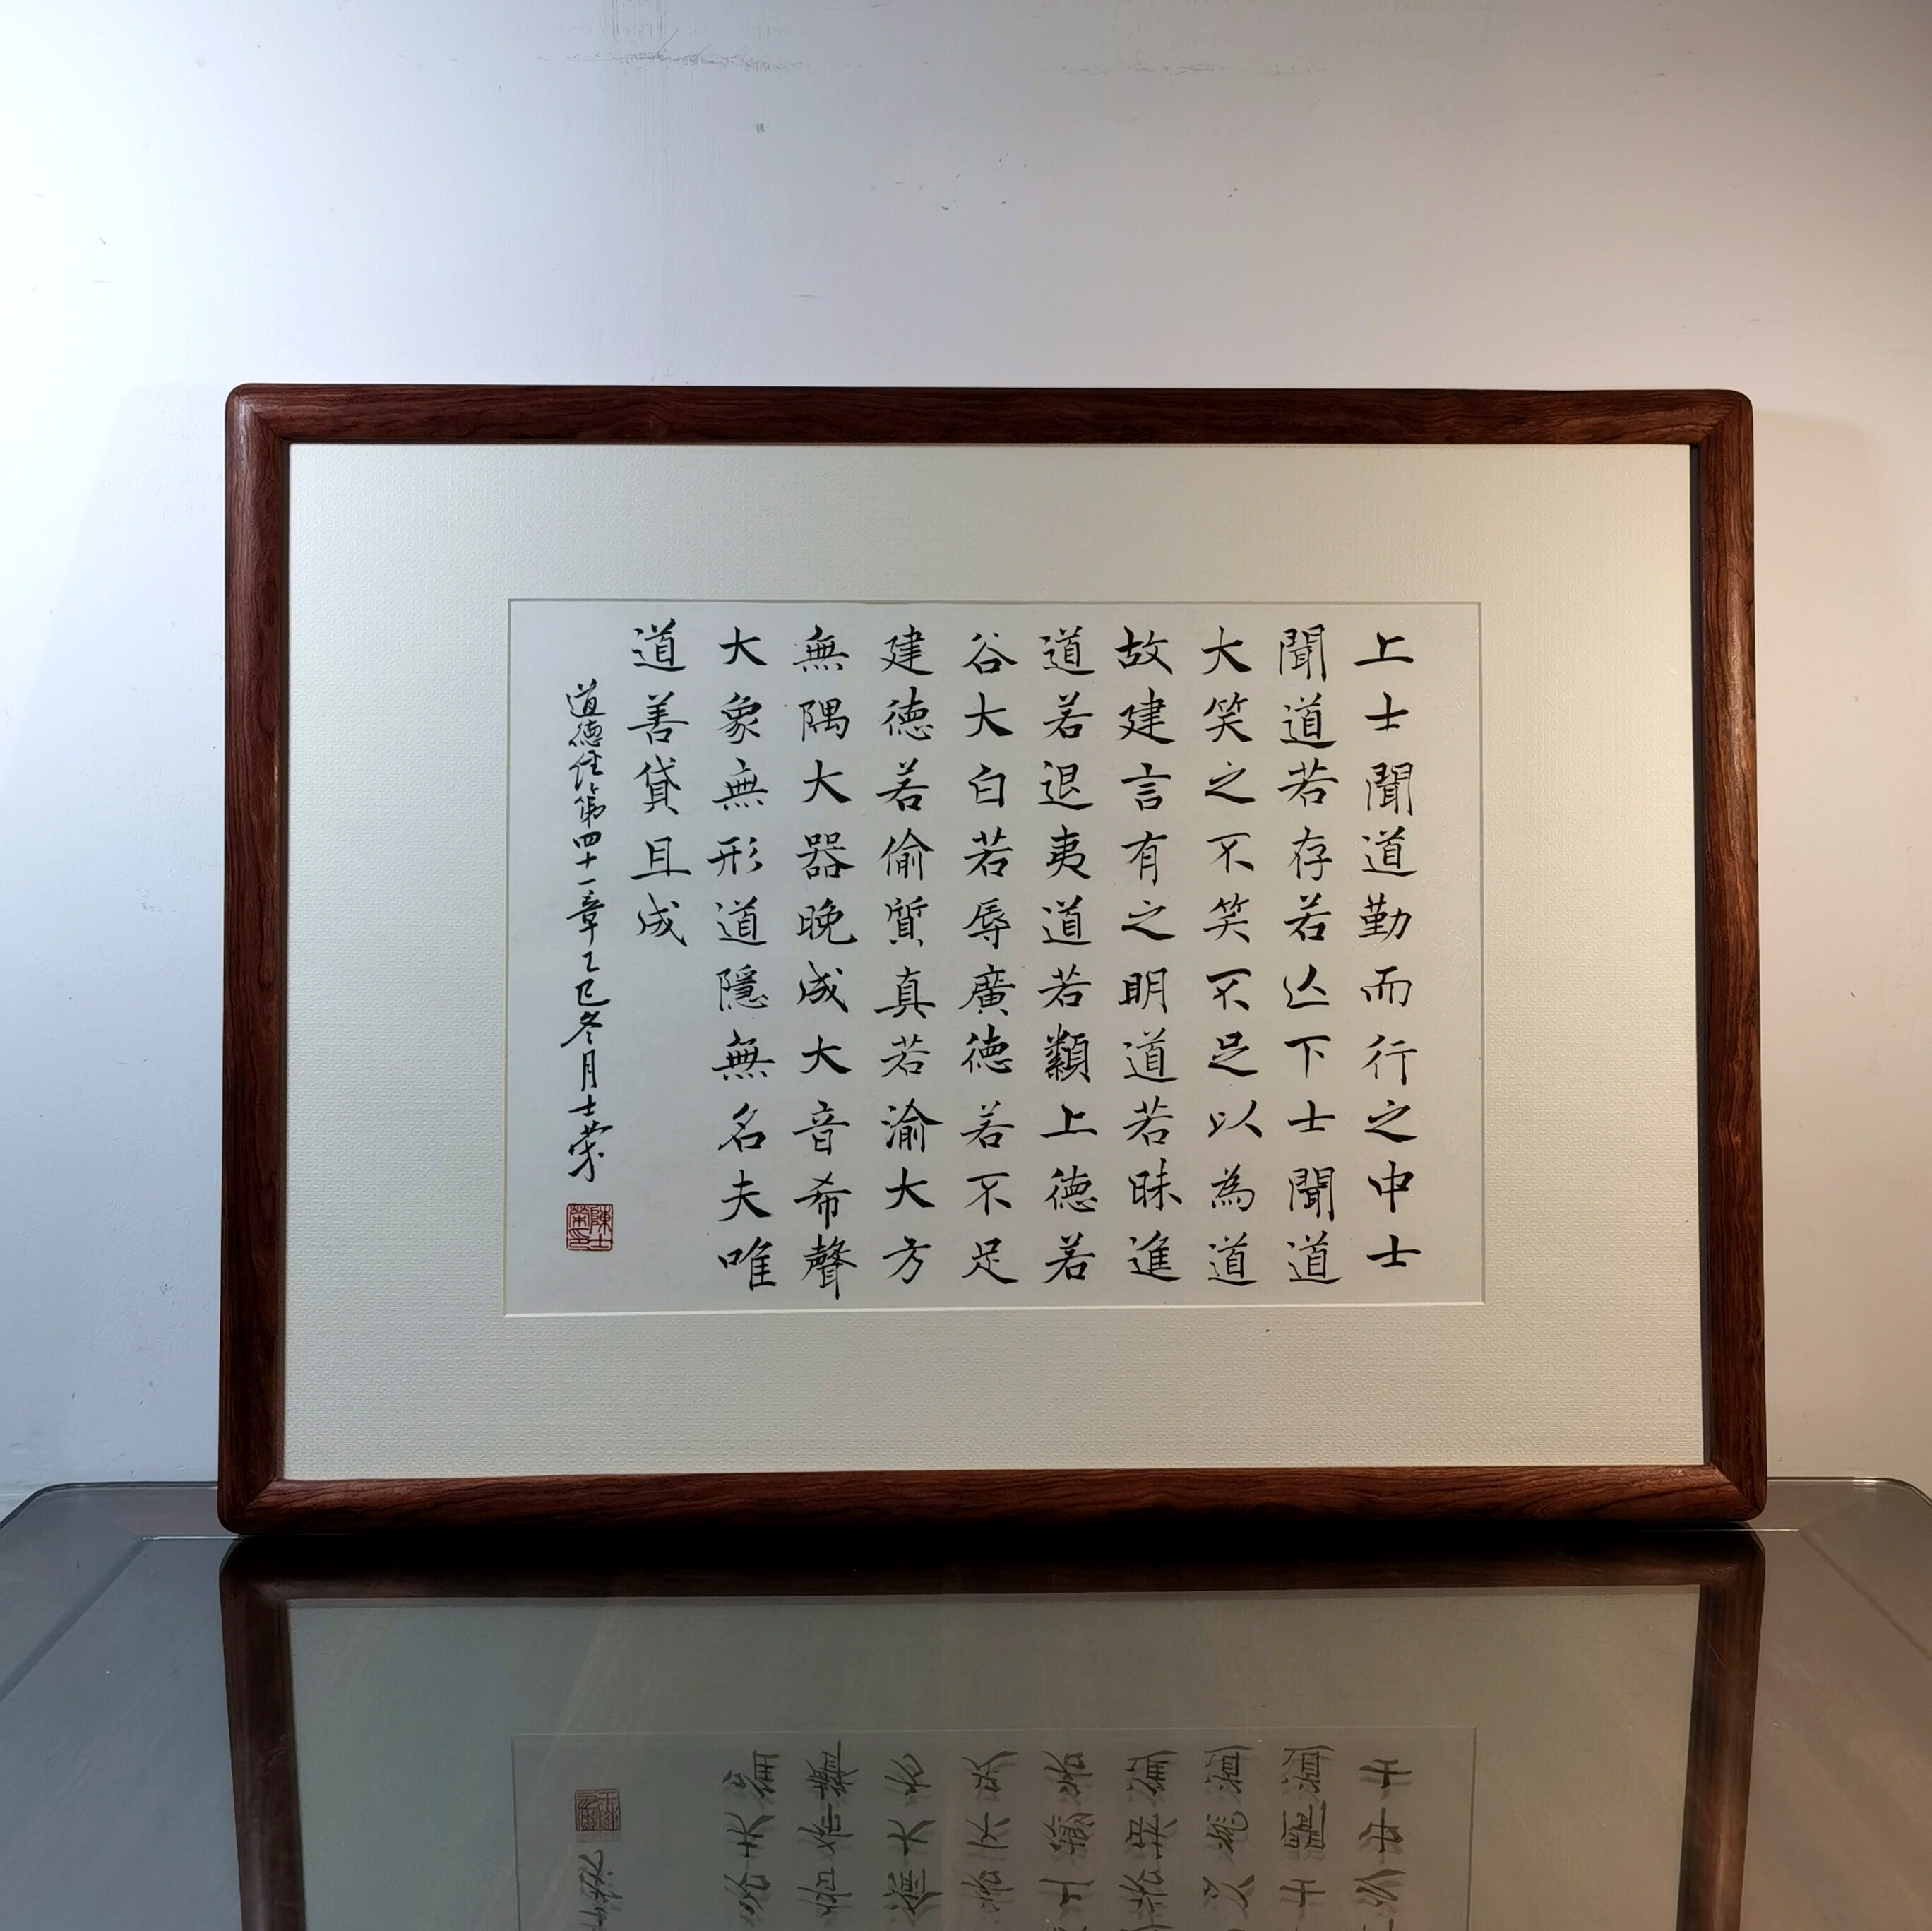 上士聞道勤而行之中士
聞道若存若亾下士聞道
大笑之不笑不足以為道
故建言有之明道若昧進
道若退夷道若纇上德若
谷大白若辱廣德若不足
建德若偷質真若渝大方
無隅大器晚成大音希聲
大象無形道隱無名夫唯
道善貸且成
道德經第四十一章乙巳冬月士榮
陳士榮印